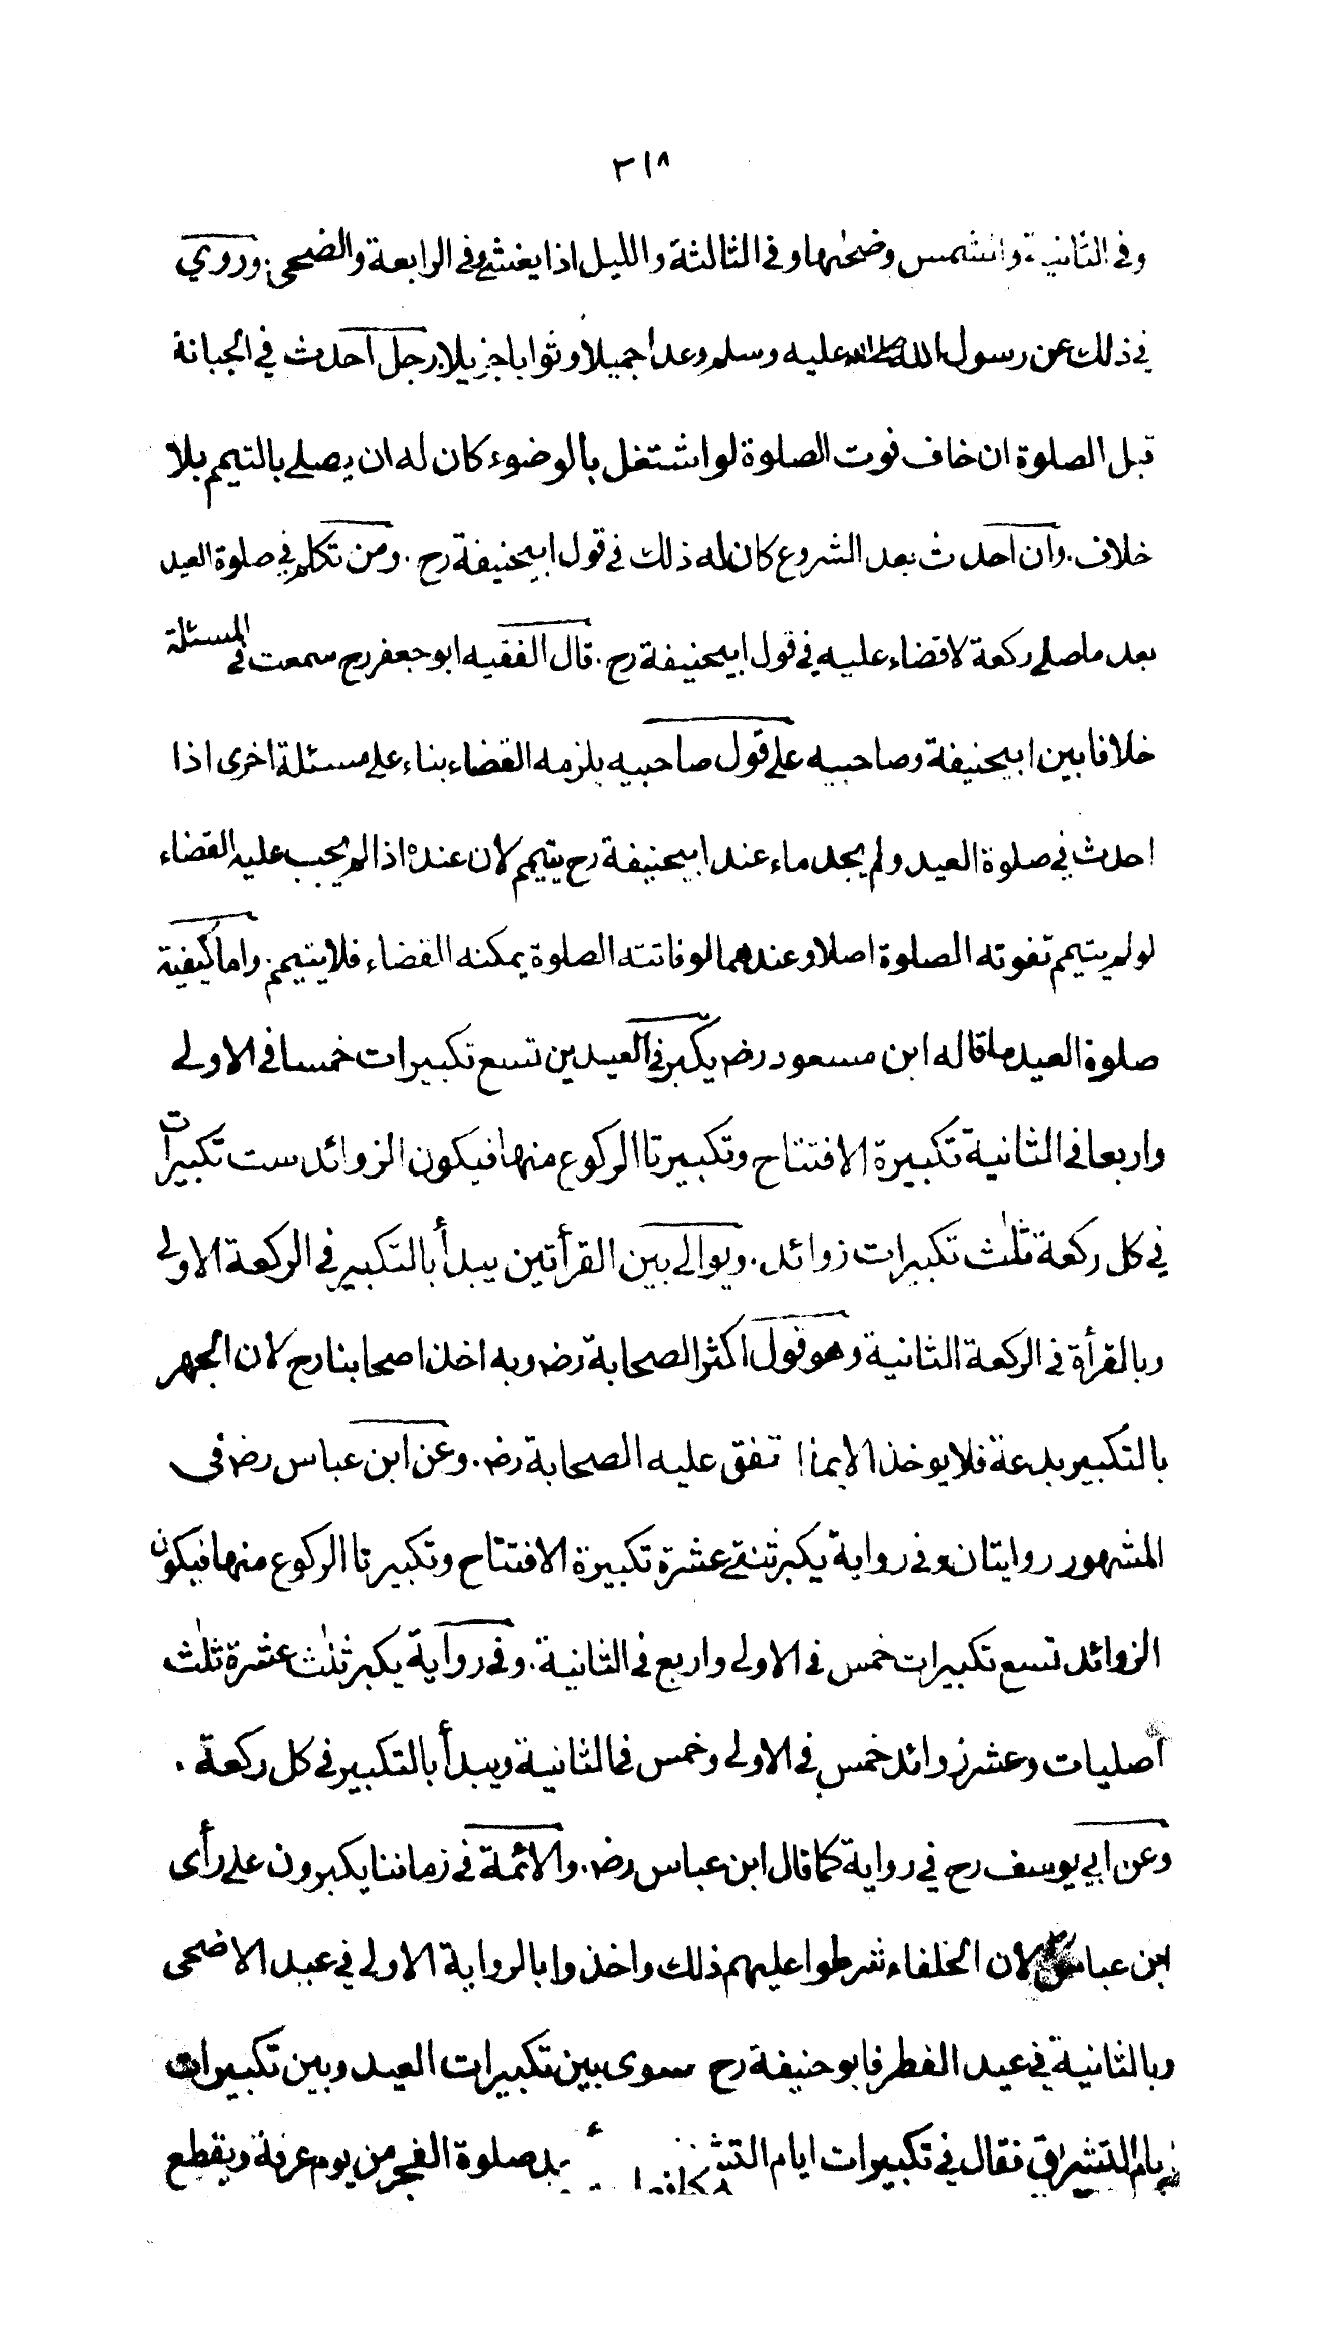 ٣١٨
وفى الثانية والشمس وضحٰها وفى الثالثة والليل اذا يغشى وفى الرابعة والضحى. وروي
فى ذلك عن رسول الله صلى الله عليه وسلم وعدا جميلا وثوابا جزيلا. رجل احدث فى الجبانة
قبل الصلوة ان خاف فوت الصلوة لو اشتغل بالوضوء كان له ان يصلى بالتيمم بلا
خلاف. وان احدث بعد الشروع كان له ذلك فى قول ابيحنيفة رح. ومن تكلم فى صلوة العيد
بعد ما صلى ركعة لا قضاء عليه فى قول ابيحنيفة رح. قال الفقيه ابو جعفر رح سمعت فى المسئلة
خلافا بين ابيحنيفة وصاحبيه على قول صاحبيه يلزمه القضاء بناء على مسئلة اخرى اذا
احدث فى صلوة العيد ولم يجد ماء عند ابيحنيفة رح يتيمم لان عنده اذا لم يجب عليه القضاء
لو لم يتيمم تفوته الصلوة اصلا وعندهما لو فاتته الصلوة يمكنه القضاء فلا يتيمم. واما كيفية
صلوة العيد ما قاله ابن مسعود رضـ يكبر فى العيدين تسع تكبيرات خمسا فى الاولى
واربعا فى الثانية تكبيرة الافتتاح وتكبيرتا الركوع منها فيكون الزوائد ست تكبيرات
فى كل ركعة ثلٰث تكبيرات زوائد. ويوالى بين القرأتين يبدأ بالتكبير فى الركعة الاولى
وبالقرأة فى الركعة الثانية وهو قول اكثر الصحابة رضـ وبه اخذ اصحابنا رح لان الجهر
بالتكبير بدعة فلا يوخذ الا بما اتفق عليه الصحابة رضـ. وعن ابن عباس رضـ فى
المشهور روايتان وفى رواية يكبر ثنتى عشرة تكبيرة الافتتاح وتكبيرتا الركوع منها فيكون
الزوائد تسع تكبيرات خمس فى الاولى واربع فى الثانية. وفى رواية يكبر ثلٰث عشرة ثلٰث
اصليات وعشر زوائد خمس فى الاولى وخمس فى الثانية ويبدأ بالتكبير فى كل ركعة.
وعن ابي يوسف رح فى رواية كما قال ابن عباس رضـ. والائمة فى زماننا يكبرون على رأى
ابن عباس لان الخلفاء شرطوا عليهم ذلك واخذوا بالرواية الاولى فى عيد الاضحى
وبالثانية فى عيد الفطر فابو حنيفة رح سوى بين تكبيرات العيد وبين تكبيرات
ايام التشريق فقال فى تكبيرات ايام صلوة الفجر من يوم عرفة ويقطع